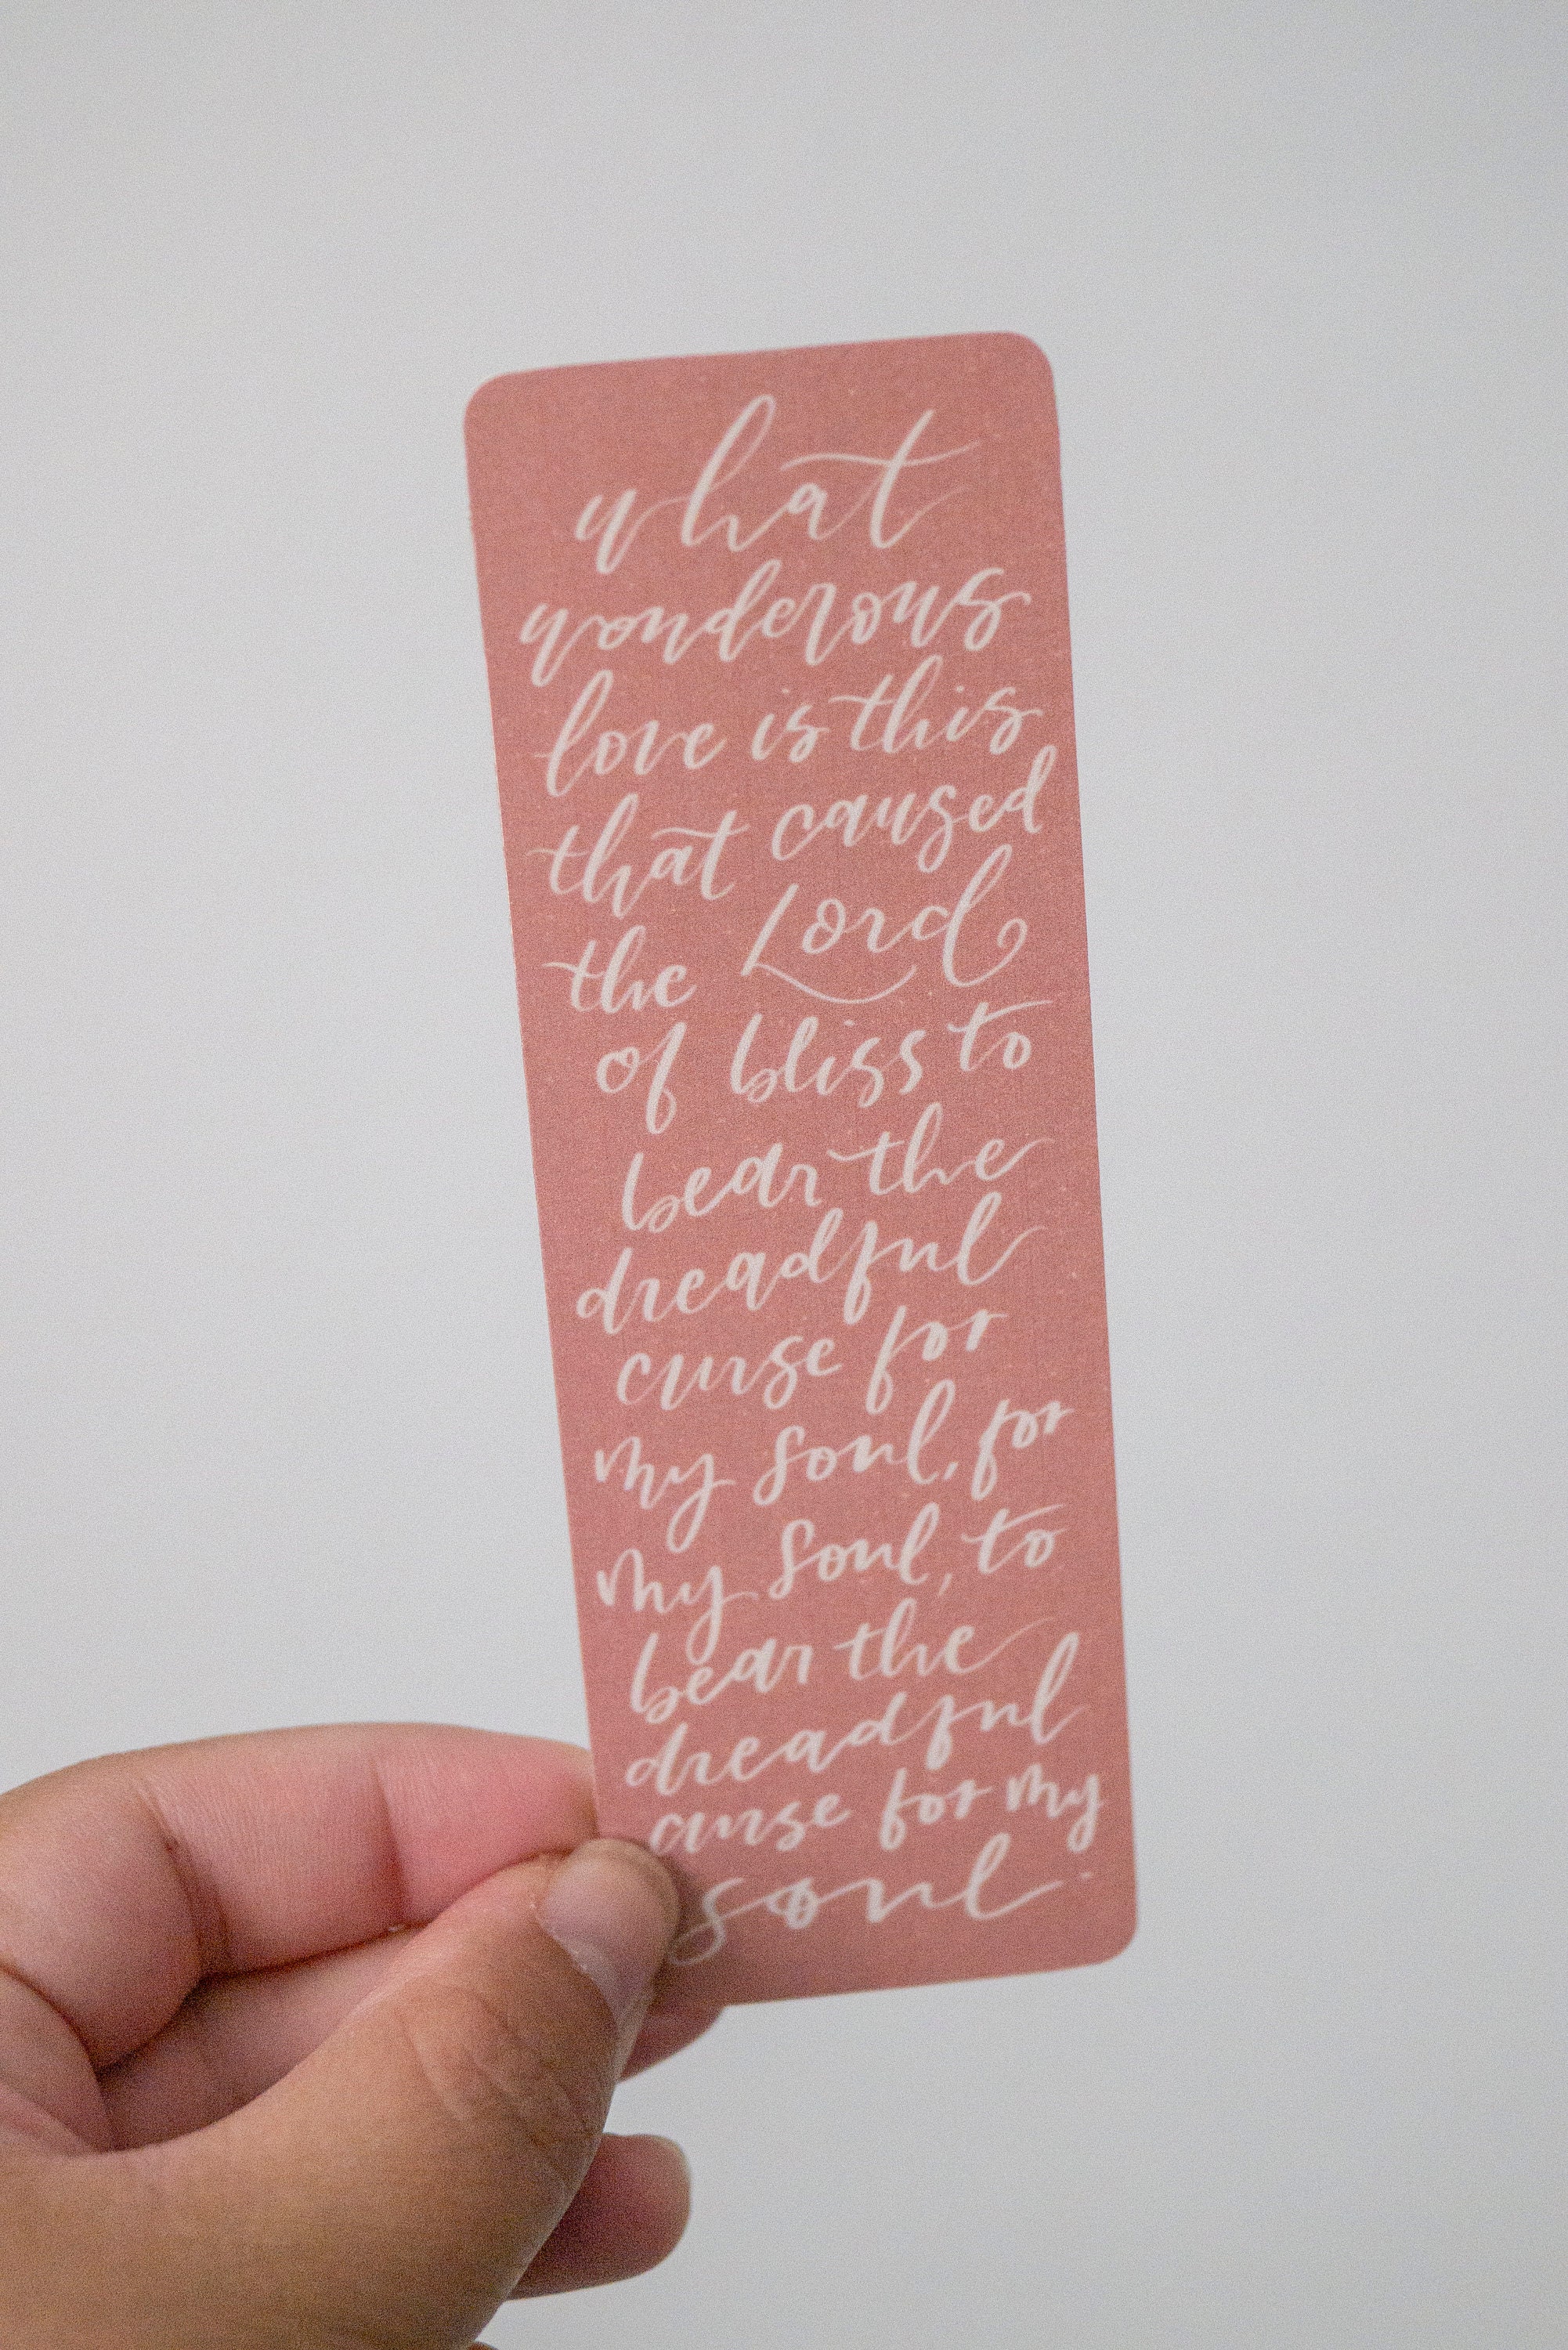 what
wonderous
love is this
that caused
the Lord
of bliss to
bear the
dreadful
curse for
my soul, for
my soul, to
bear the
dreadful
curse for my
soul.